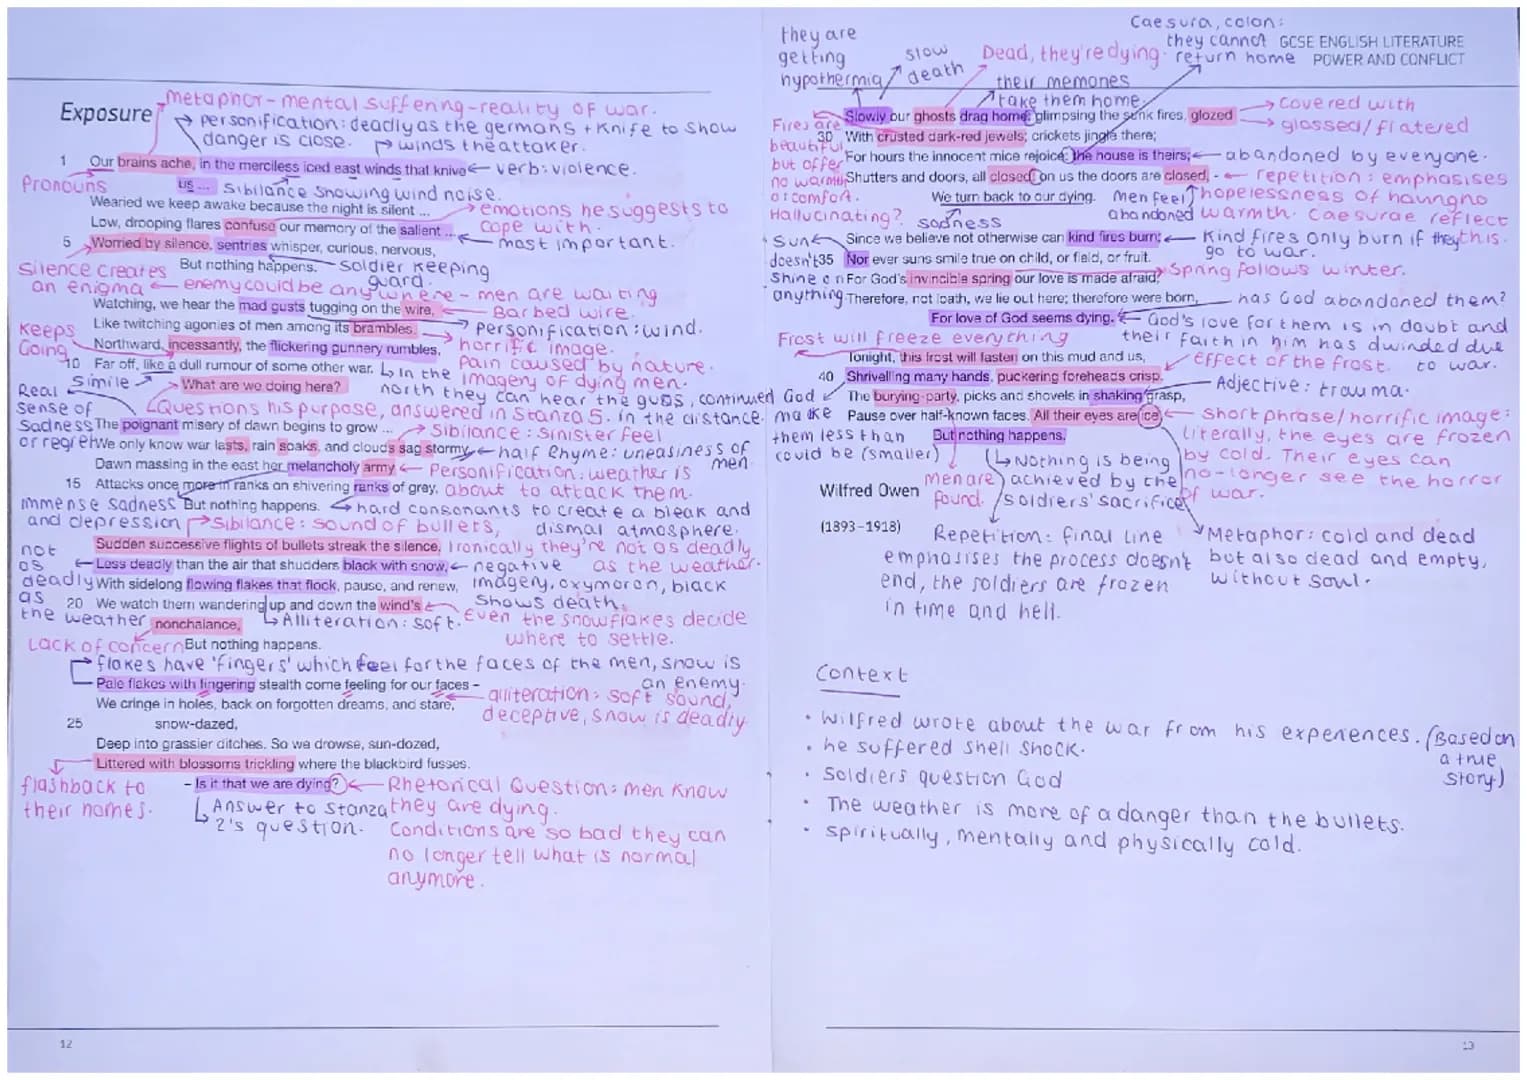 Exposure
metaphor - mental suffering - reality of war.
personification: deadly as the germans + knife to show
danger is close.
winds the attacker.
1 Our brains ache, in the merciless iced east winds that knive
us ...
verb: violence.
Pronouns
Sibilance showing wind noise.
Wearied we keep awake because the night is silent ...
emotions he suggests to
cope with.
Low, drooping flares confuse our memory of the salient ...
most important.
5 Worried by silence, sentries whisper, curious, nervous,
But nothing happens.
soldier keeping
guard.
Silence creates
an enigma
enemy could be anywhere - men are waiting
Watching, we hear the mad gusts tugging on the wire,
Barbed wire.
Like twitching agonies of men among its brambles.
Personification: wind.
horrific image.
Pain caused by nature.
Imagery of dying men.
Keeps
Going
Northward, incessantly, the flickering gunnery rumbles,
10 Far off, like a dull rumour of some other war.
In the
north they can hear the guns, continued
in the distance.
Simile
What are we doing here?
Questions his purpose, answered in Stanza 5.
Real
sense of
sadness
or regret
The poignant misery of dawn begins to grow ...
Sibilance: sinister feel
We only know war lasts, rain soaks, and clouds sag stormy.
half rhyme: uneasiness of
men
Dawn massing in the east her melancholy army
Personification: weather is
about to attack them.
15 Attacks once more in ranks on shivering ranks of grey,
immense sadness
and depression
But nothing happens.
hard consonants to create a bleak and
dismal atmosphere.
Sibilance: sound of bullets,
Sudden successive flights of bullets streak the silence.
Ironically they're not as deadly
as the weather.
not
as
deadly
as
the weather
Less deadly than the air that shudders black with snow,
negative
imagery, oxymoron, black
shows death.
With sidelong flowing flakes that flock, pause, and renew,
20 We watch them wandering up and down the wind's
nonchalance,
Alliteration: soft.
Even the snowflakes decide
where to settle.
Lack of concern
But nothing happens.
flakes have 'fingers' which feel for the faces of the men, snow is
an enemy.
Pale flakes with fingering stealth come feeling for our faces -
alliteration: soft sound,
deceptive, snow is deadly
We cringe in holes, back on forgotten dreams, and stare,
25 snow-dazed,
Deep into grassier ditches. So we drowse, sun-dozed,
Littered with blossoms trickling where the blackbird fusses.
flashback to
their homes.
- Is it that we are dying?
Answer to stanza
2's question.
Rhetorical Question: men know
they are dying.
Conditions are so bad they can
no longer tell what is normal
anymore.
12
GCSE ENGLISH LITERATURE
POWER AND CONFLICT
they are
getting
hypothermia
slow
death
Dead, they're dying.
their memories
take them home.
Caesura, colon:
they cannot
return home
Slowly our ghosts drag home: glimpsing the sunk fires, glozed
Covered with
glossed/flatered
30 With crusted dark-red jewels; crickets jingle there;
Fires are
beautiful
but offer
no warmth
or comfort.
Hallucinating?
For hours the innocent mice rejoice: the house is theirs;
abandoned by everyone.
Shutters and doors, all closed: on us the doors are closed, -
repetition: emphasises
hopelessness of having no
warmth. Caesurae reflect
this.
We turn back to our dying.
sadness
men feel
abandoned
Since we believe not otherwise can kind fires burn;
Kind fires only burn if they
go to war.
Sun
doesn't
shine on
anything
35 Nor ever suns smile true on child, or field, or fruit.
For God's invincible spring our love is made afraid;
Spring follows winter.
Therefore, not loath, we lie out here; therefore were born,
has God abandoned them?
For love of God seems dying.
God's love for them is in doubt and
their faith in him has dwindled due
to war.
Frost will freeze everything
Tonight, this frost will fasten on this mud and us,
effect of the frost.
40 Shrivelling many hands, puckering foreheads crisp.
The burying-party, picks and shovels in shaking grasp,
Adjective: trauma.
God
make
them less than
could be (smaller)
Pause over half-known faces. All their eyes are ice,
short phrase/horrific image:
literally, the eyes are frozen
by cold. Their eyes can
no-longer see the horror
of war.
But nothing happens.
men are
found.
Nothing is being
achieved by the
soldiers' sacrifice
Wilfred Owen
(1893–1918)
Repetition: final line
emphasises the process doesn't
end, the soldiers are frozen
in time and hell.
Metaphor: cold and dead
but also dead and empty,
without soul.
Context
• Wilfred wrote about the war from his experiences. (Based on
a true
story)
• he suffered shell shock.
• Soldiers question God
• The weather is more of a danger than the bullets.
• spiritually, mentally and physically cold.
13